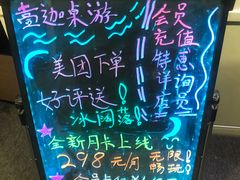 壹迦桌游
美团下单
好评送
冰阔落!
全新月卡上线
298元/月 无限畅玩!
会员充值
特惠
详询店员